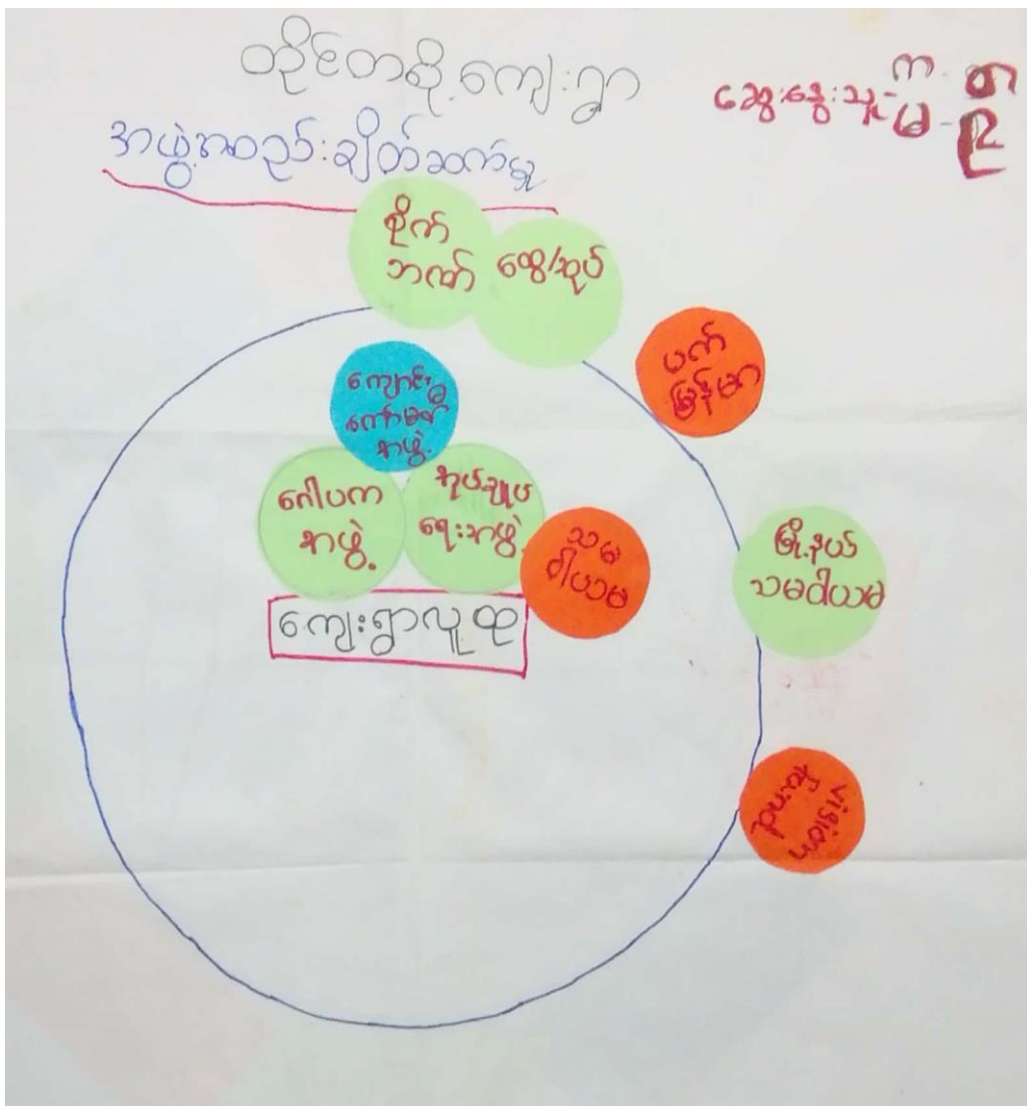 ထိုင်တစို့ကျေးရွာ
အဖွဲ့အစည်းချိတ်ဆက်မှု
ဆွေးနွေးသူ- ကျ
မ -
စိုက်
ဘဏ်
ထွေ/အုပ်
ပက်
မြန်မာ
ကျောင်း
ကော်မတီ
အဖွဲ့
ဂေါပက
အဖွဲ့
အုပ်ချုပ်
ရေးအဖွဲ့
သမ
ဝါယမ
မြို့နယ်
သမဝါယမ
ကျေးရွာလူထု
vision
fund